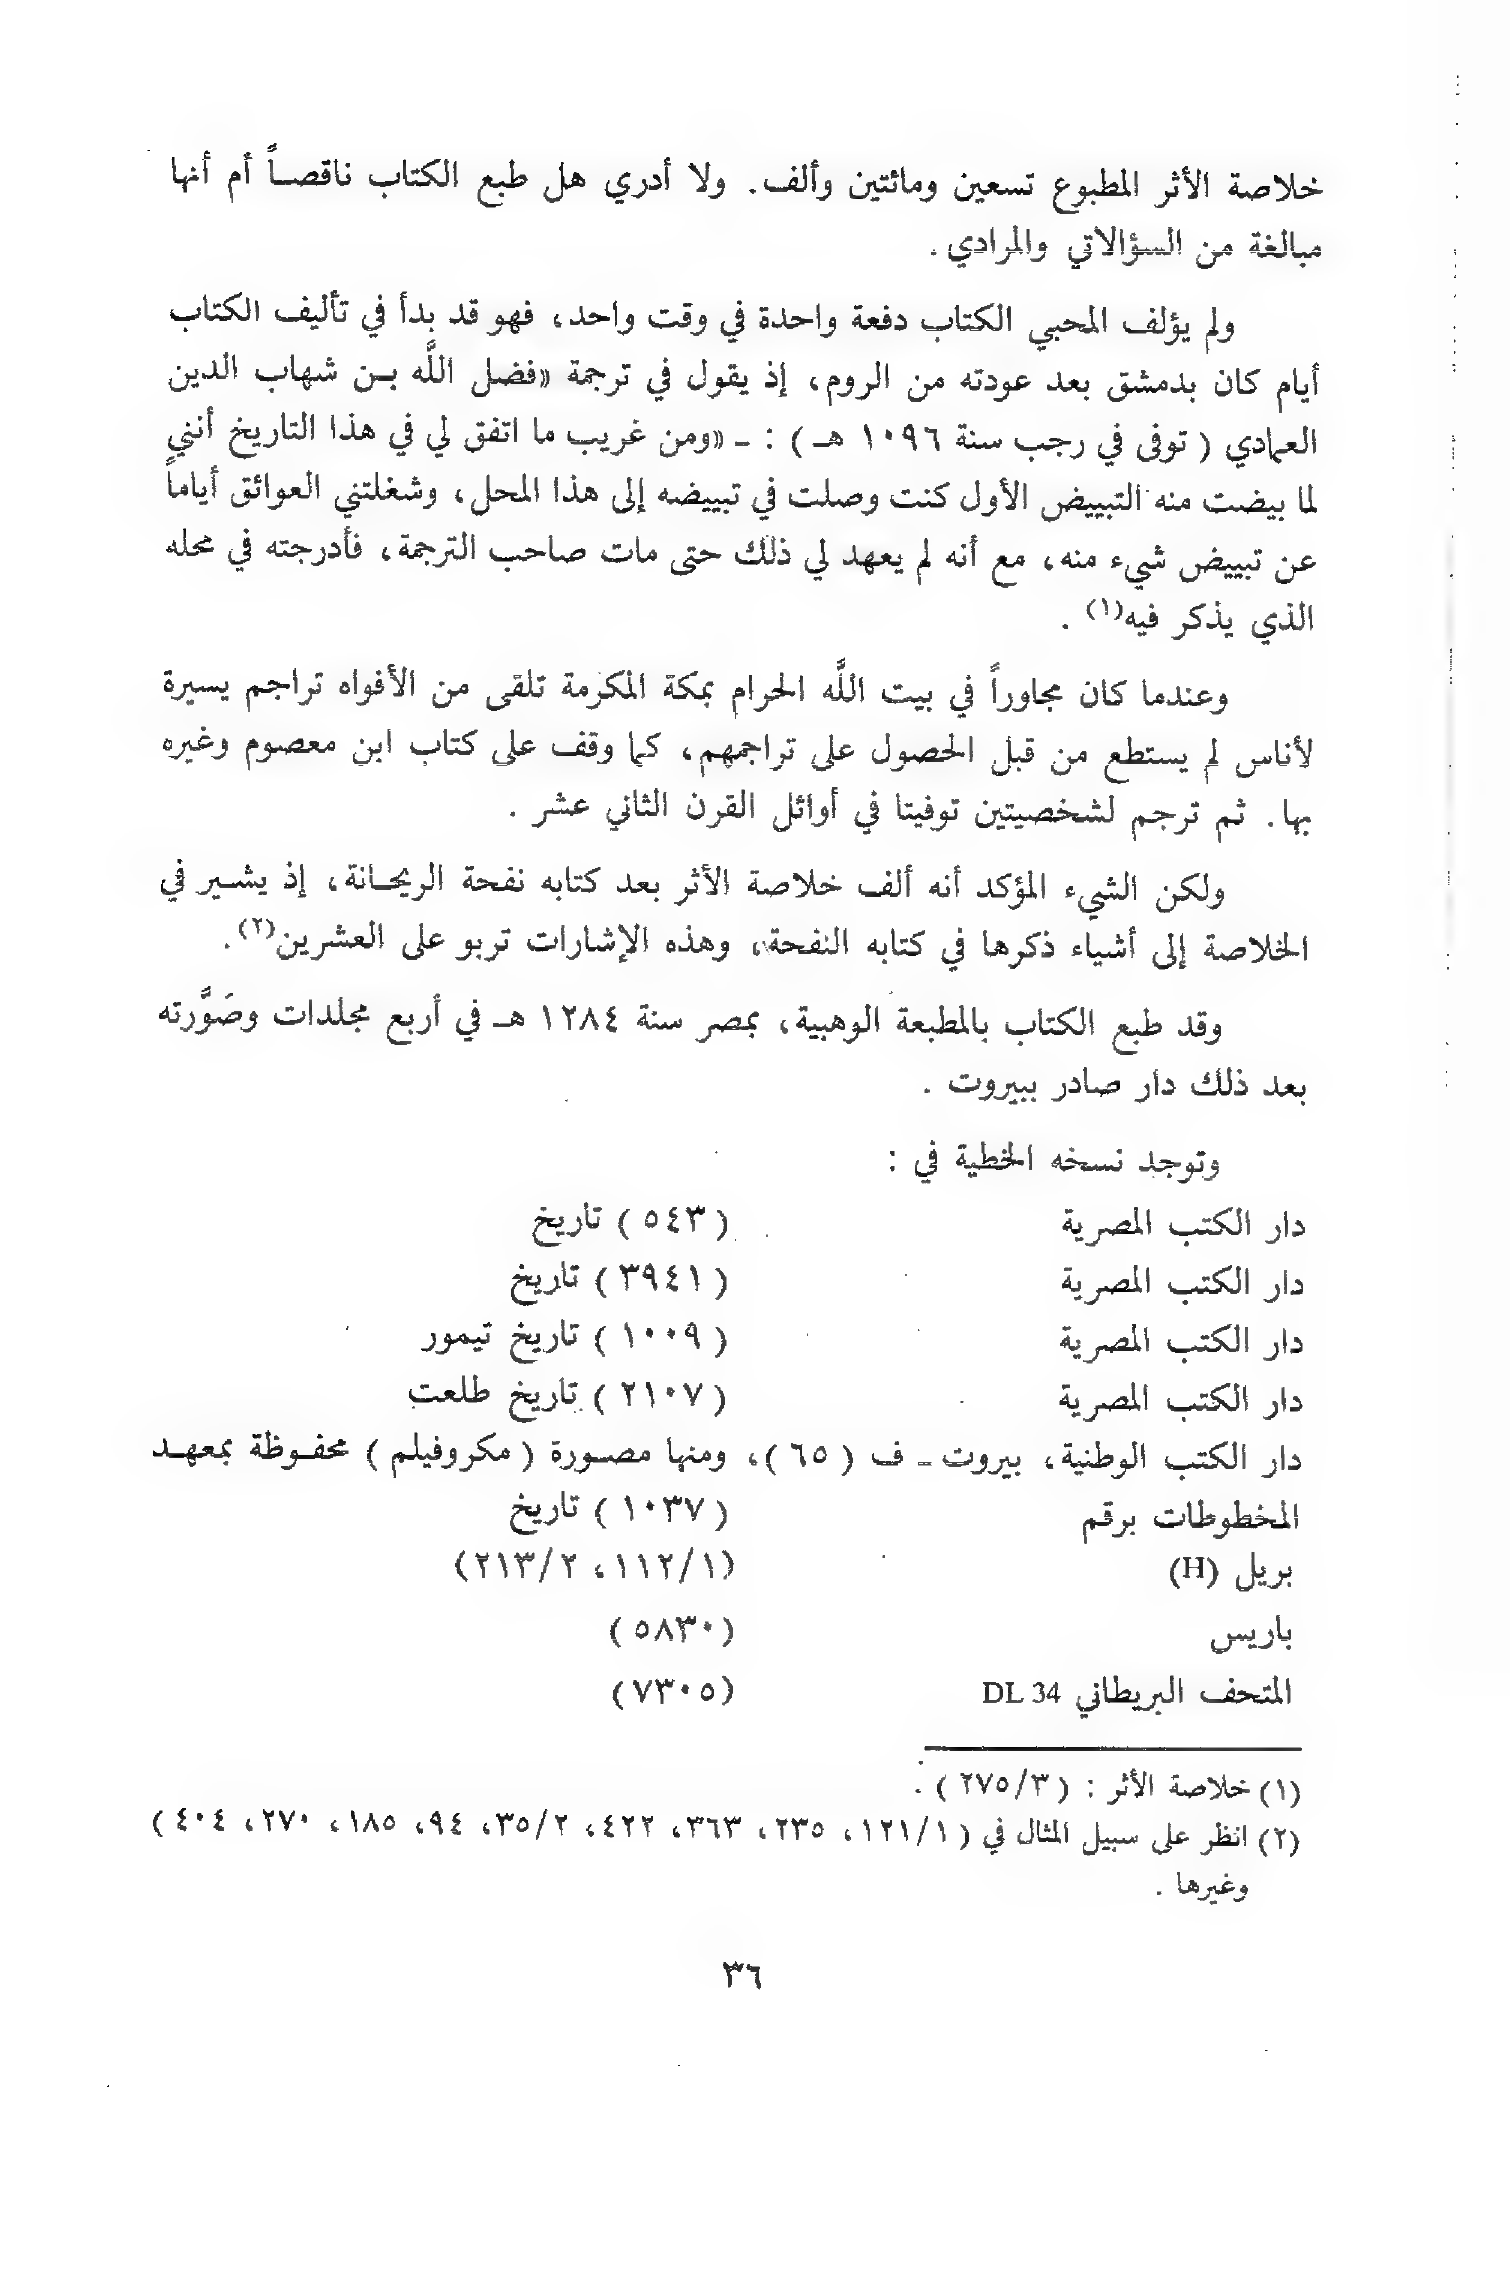 خلاصة الأثر المطبوع تسعين ومائتين وألف. ولا أدري هل طبع الكتاب ناقصاً أم أنها
مبالغة من السؤالاتي والمرادي .
ولم يؤلف المحبي الكتاب دفعة واحدة في وقت واحد، فهو قد بدأ في تأليف الكتاب
أيام كان بدمشق بعد عودته من الروم، إذ يقول في ترجمة «فضل اللَّه بن شهاب الدين
العمادي ( توفى في رجب سنة ١٠٩٦ هـ ) : ـ «ومن غريب ما اتفق لي في هذا التاريخ أنني
لما بيضت منه التبييض الأول كنت وصلت في تبييضه إلى هذا المحل، وشغلتني العوائق أياماً
عن تبييض شيء منه، مع أنه لم يعهد لي ذلك حتى مات صاحب الترجمة، فأدرجته في محله
الذي يذكر فيه(١) .
وعندما كان مجاوراً في بيت اللَّه الحرام بمكة المكرمة تلقى من الأفواه تراجم يسيرة
لأناس لم يستطع من قبل الحصول على تراجمهم، كما وقف على كتاب ابن معصوم وغيره
بها. ثم ترجم لشخصيتين توفيتا في أوائل القرن الثاني عشر .
ولكن الشيء المؤكد أنه ألف خلاصة الأثر بعد كتابه نفحة الريحانة، إذ يشير في
الخلاصة إلى أشياء ذكرها في كتابه النفحة، وهذه الإشارات تربو على العشرين(٢).
وقد طبع الكتاب بالمطبعة الوهبية، بمصر سنة ١٢٨٤ هـ في أربع مجلدات وصَوَّرته
بعد ذلك دار صادر ببيروت .
وتوجد نسخه الخطية في :
دار الكتب المصرية ( ٥٤٣ ) تاريخ
دار الكتب المصرية ( ٣٩٤١ ) تاريخ
دار الكتب المصرية ( ١٠٠٩ ) تاريخ تيمور
دار الكتب المصرية ( ٢١٠٧ ) تاريخ طلعت
دار الكتب الوطنية، بيروت ـ ف ( ٦٥ )، ومنها مصورة ( مكروفيلم ) محفوظة بمعهد
المخطوطات برقم ( ١٠٣٧ ) تاريخ
بريل (H) (١١٢/١، ٢١٣/٢)
باريس ( ٥٨٣٠ )
المتحف البريطاني DL 34 (٧٣٠٥ )
(١) خلاصة الأثر : ( ٢٧٥/٣ ) .
(٢) انظر على سبيل المثال في ( ١٢١/١، ٢٣٥، ٣٦٣، ٤٢٢، ٣٥/٢، ٩٤، ١٨٥، ٢٧٠، ٤٠٤ )
وغيرها .
٣٦